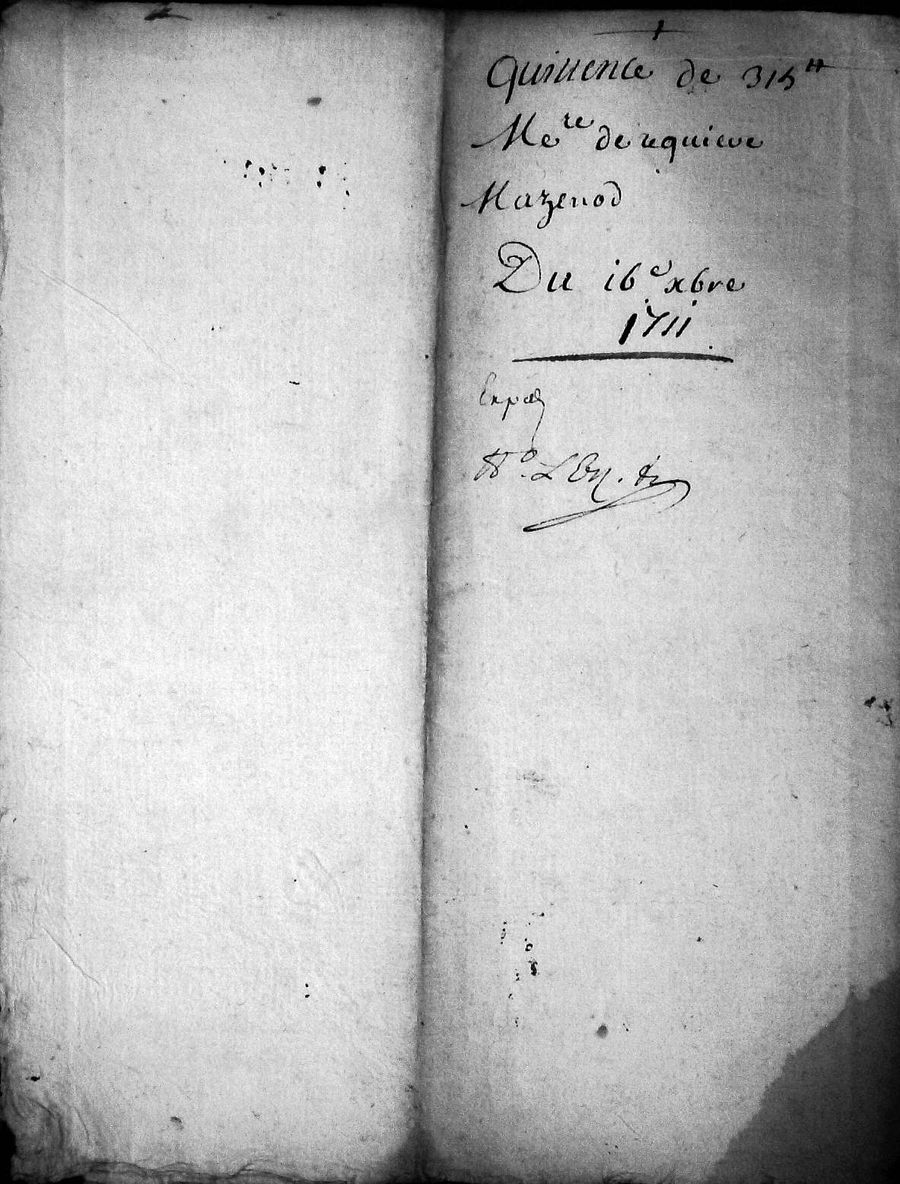 Quittence de 315 ₶
Me.re de requieue
Mazenod
Du 16e xbre
1711
Exp.
No